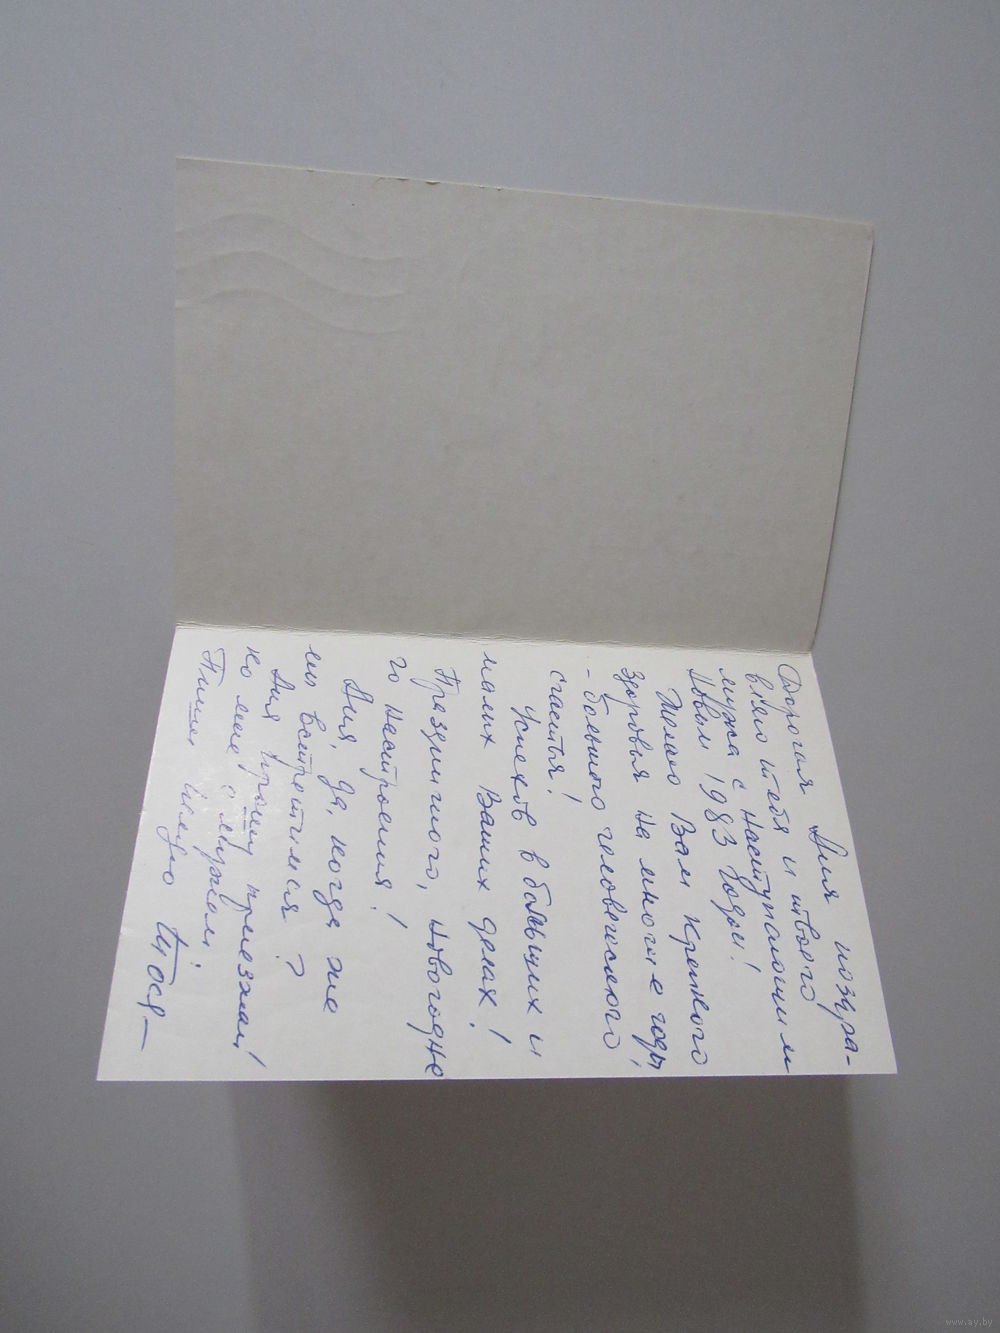 Дорогая Аня поздра-
вляю тебя и твоего
мужа с наступающим
Новым 1983 Годом!
Желаю Вам крепкого
здоровья на многие годы,
- большого человеческого
счастья!
Успехов в больших и
малых Ваших делах!
Праздничного, новогодне
го настроения!
Аня, да, когда же
мы встретимся?
Аня прошу приезжай
ко мне с мужем!
Пиши, целую Тося
www.ay.by